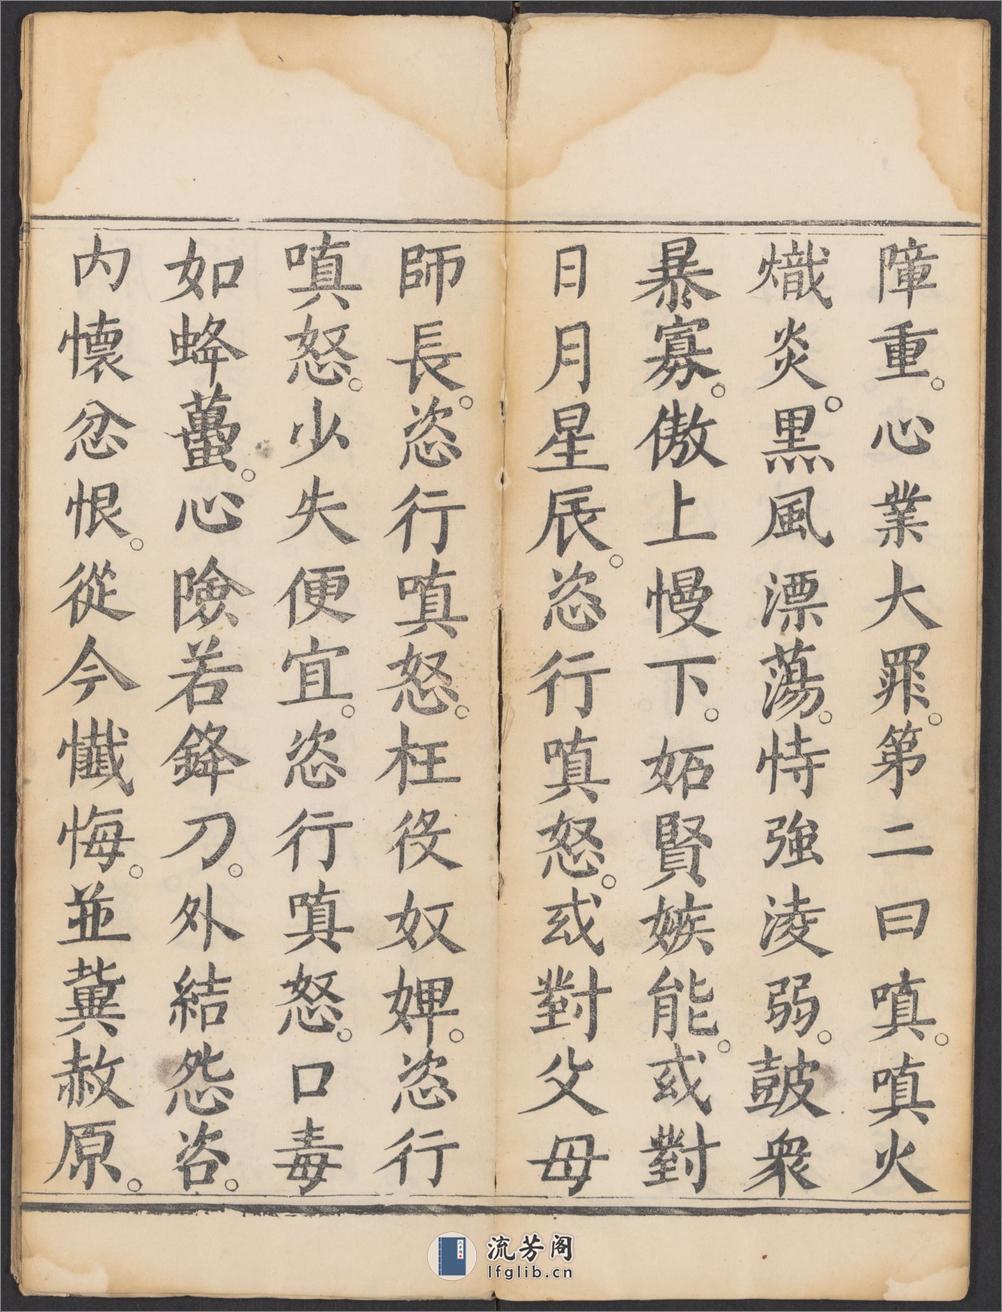 障重。心業大罪。第二曰嗔。嗔火
熾炎。黑風漂蕩。恃強凌弱。鼓衆
暴寡。傲上慢下。妬賢嫉能。或對
日月星辰。恣行嗔怒。或對父母
師長。恣行嗔怒。枉役奴婢。恣行
嗔怒。少失便宜。恣行嗔怒。口毒
如蜂蠆。心險若鋒刀。外結怨咨。
內懷忿恨。從今懺悔。並冀赦原。
流芳阁
lfglib.cn